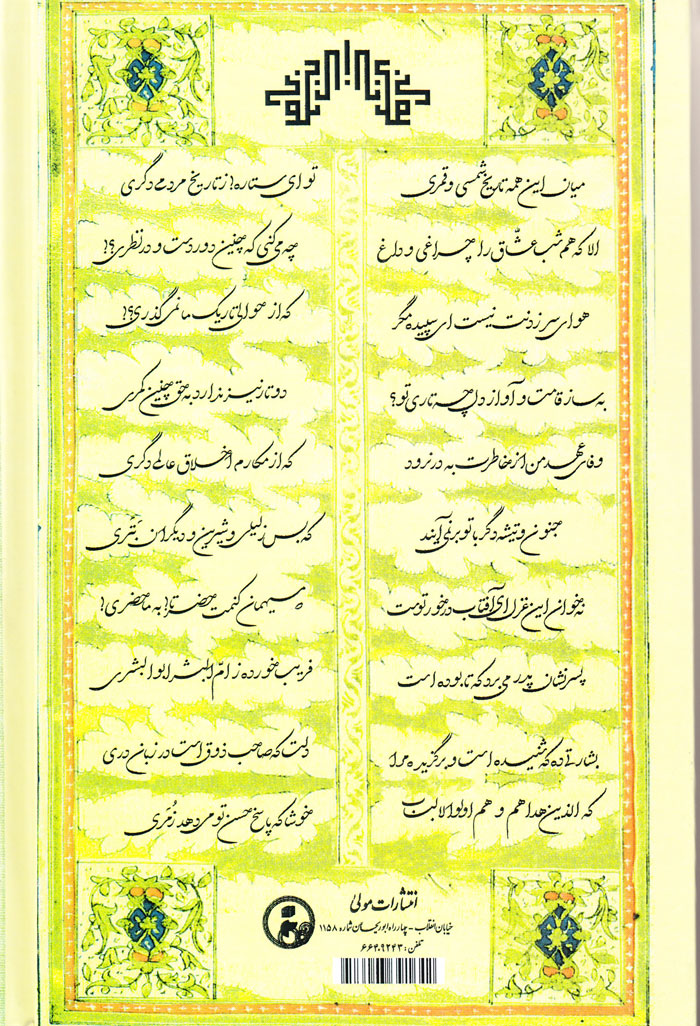 میان این همه تاریخ شمسی و قمری تو ای ستاره! ز تاریخ مردمی دگری
الا که هم شب عشّاق را چراغی و داغ چه می‌کنی که چنین دوردست و در نظری؟!
هوای سرزدنت نیست ای سپیده مگر که از حوالی تاریک ما نمی‌گذری؟!
به ساز قامت و آواز دل چه تاری تو؟ دو تار نیز ندارد به حق چنین کمری
وفای عهد من از خاطرت به در نرود که از مکارم اخلاق عالمی دگری
جنون و تیشه دگر با تو برنمی‌آیند که بس ز لیلی و شیرین و دیگران بَتَری
نه خوان این غزل ای آفتاب در خور توست میهمان کنمت حضرتا! به ماحضری!
پسر نشان پدر می‌برد که تا بوده است فریب خورده ز امّ البشر ابوالبشری
بشارتی ده که شنیده است و برگزیده مرا دلت که صاحب ذوق است در زبان دری
که الذین هداهم و هم اولوا الالباب خوشا که پاسخ حسن تو می‌دهد زُمَری
انتشارات مولی
خیابان انقلاب - چهارراه ابوریحان شماره ۱۱۵۸
تلفن: ۶۶۴۰۹۲۴۳